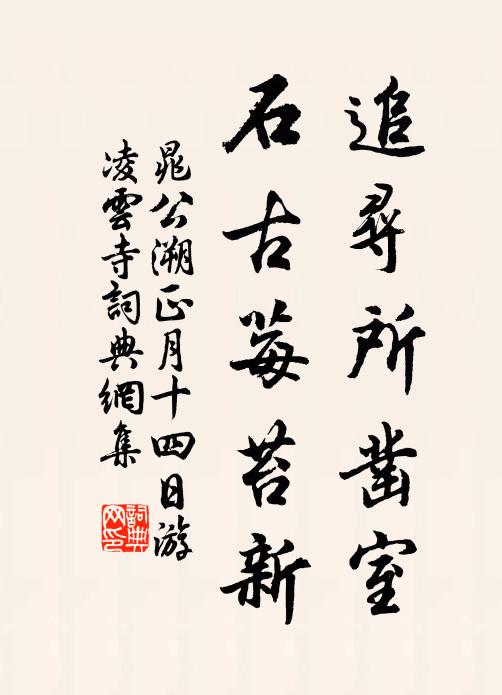 追尋所凿室
石古莓苔新
晁公溯正月十四日游
凌雲寺詞典網集
詞典
网印